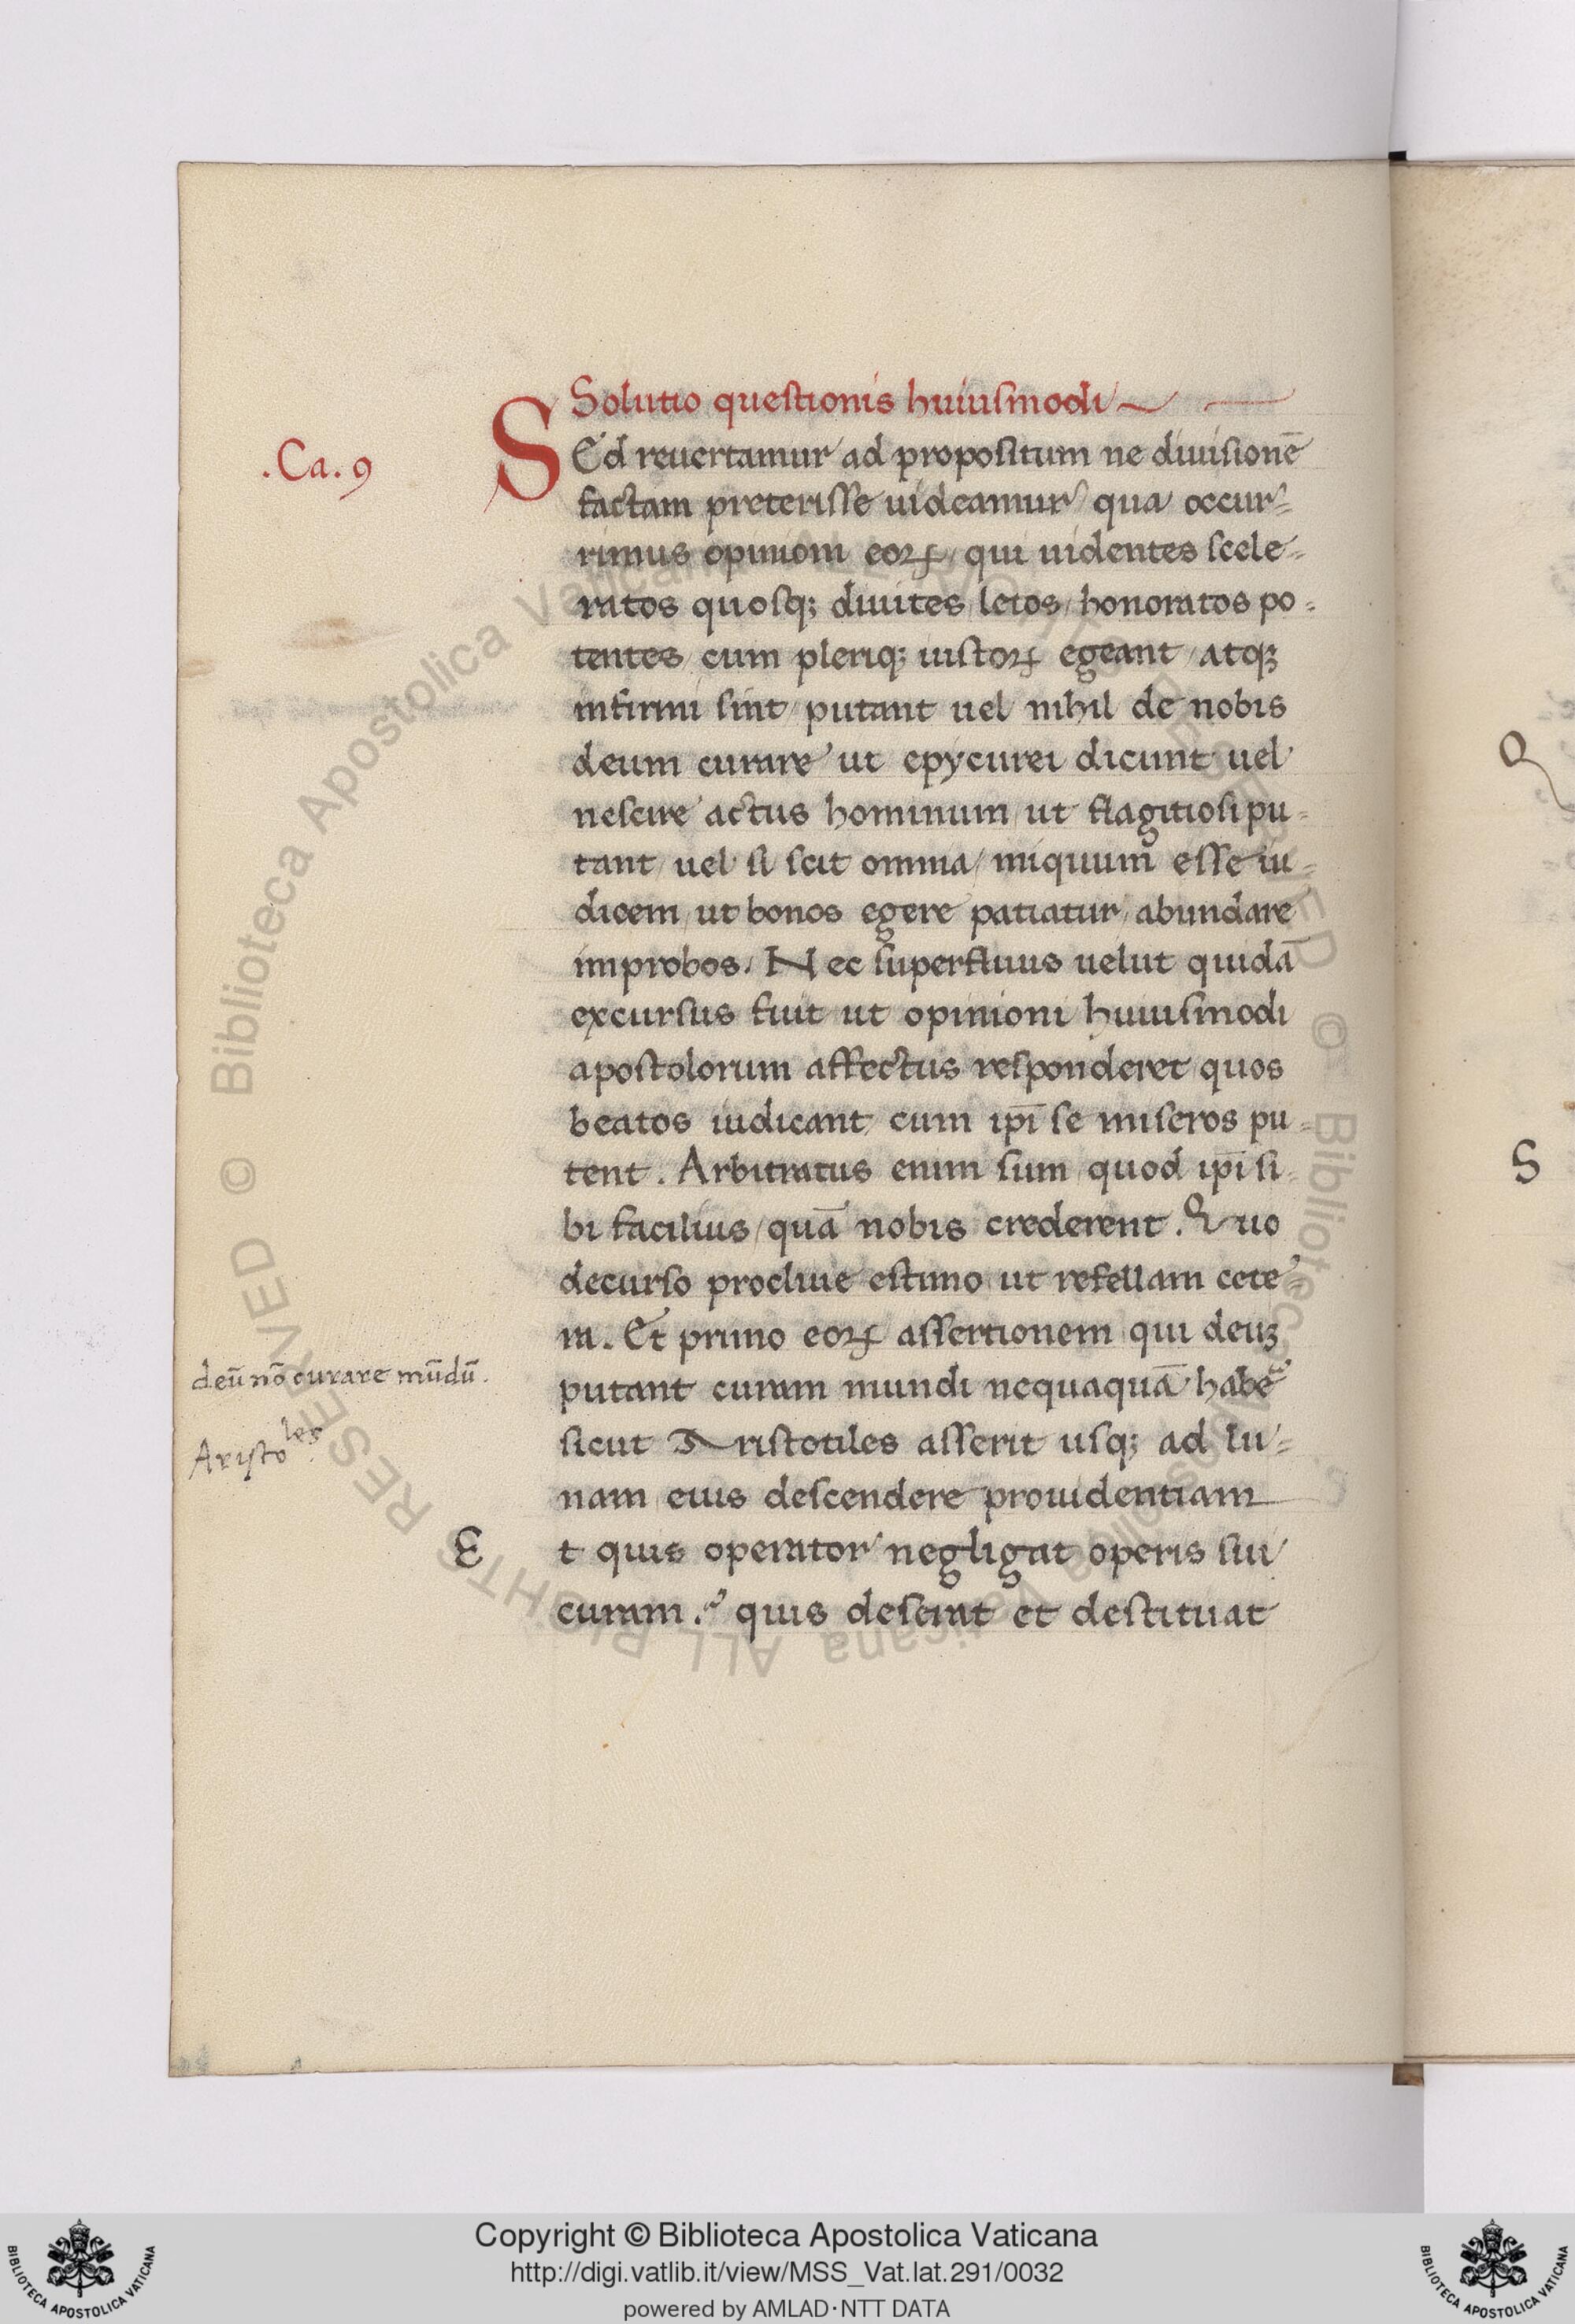 Solutio questionis huiusmodi
.Ca. 9
SEd reuertamur ad propositum ne diuisionē
factam preterisse uideamur qua occur=
rimus opinioni eoꝝ/ qui uidentes scele=
ratos quosqꝫ diuites/ letos/ honoratos po=
tentes/ cum pleriqꝫ iustoꝝ egeant/ atqꝫ
infirmi sint/ putant uel nihil de nobis
deum curare ut epycurei dicunt uel
nescire actus hominum/ ut flagitiosi pu=
tant/ uel si scit omnia/ iniquum esse iu=
dicem/ ut bonos egere patiatur/ abundare
improbos. Nec superfluus uelut quidā
excursus fuit ut opinioni huiusmodi
apostolorum affectus responderet quos
beatos iudicant/ cum ip̄i se miseros pu=
tent. Arbitratus enim sum quod ip̄i si=
bi facilius/ quā nobis crederent. Quo
decurso procliue estimo ut refellam cete=
ra. Et primo eoꝝ assertionem qui deuꝫ
putant curam mundi nequaquā habe͛
sicut Aristotiles asserit usqꝫ ad lu=
nam eius descendere prouidentiam
Et quis operator negligat operis sui
curam? quis deserat et destituat
deū nō curare mūdū.
Aristoles.
Q
S
Biblioteca Apostolica Vaticana ALL RIGHTS RESERVED ©
Copyright © Biblioteca Apostolica Vaticana
http://digi.vatlib.it/view/MSS_Vat.lat.291/0032
powered by AMLAD·NTT DATA
BIBLIOTECA APOSTOLICA VATICANA
BIBLIOTECA APOSTOLICA VATICANA